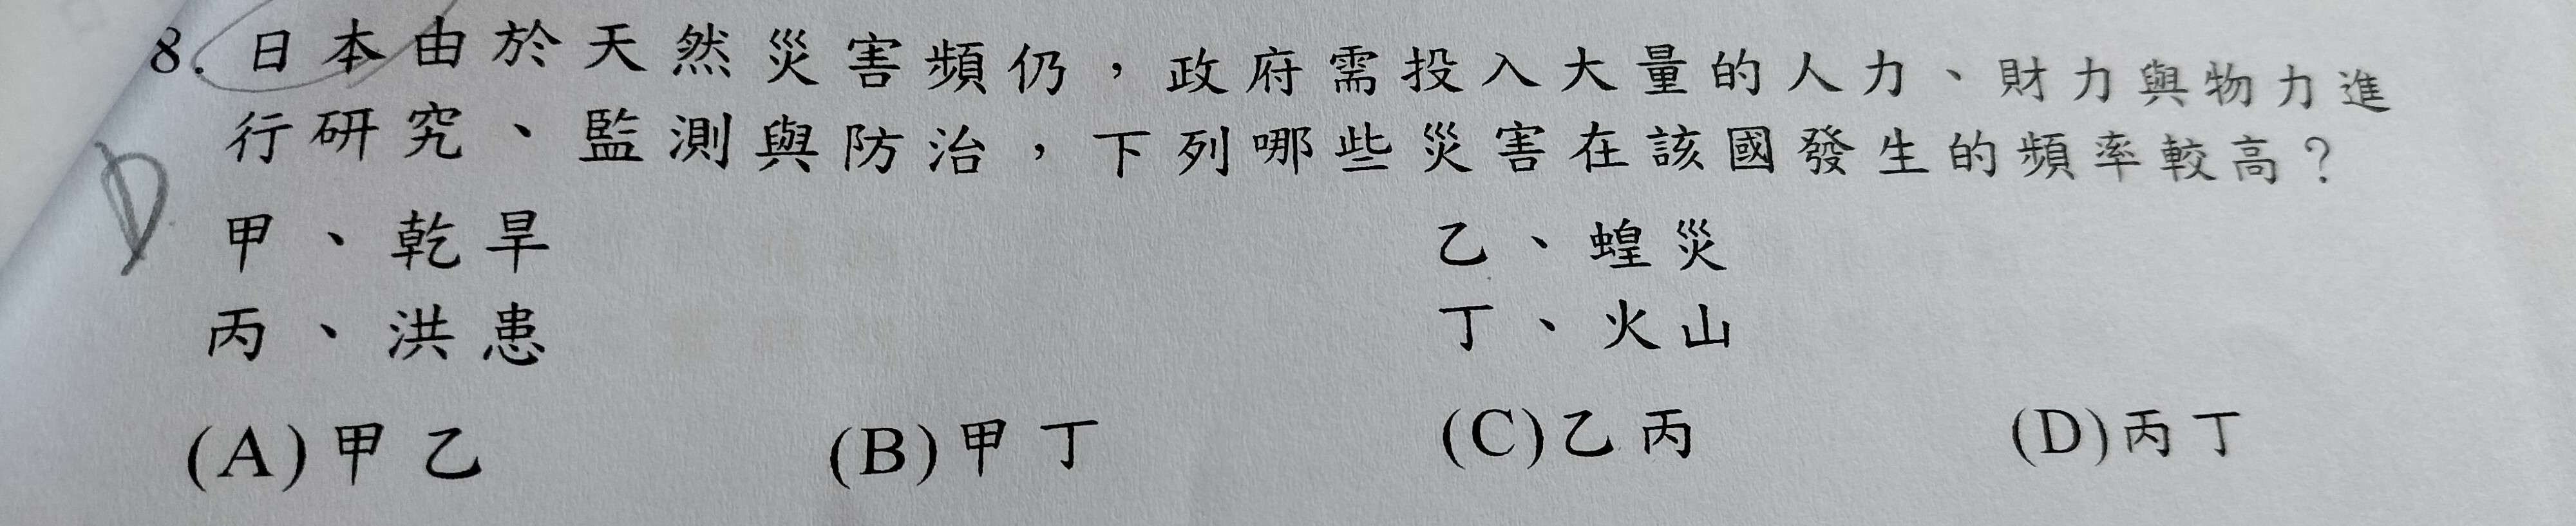 8. 日本由於天然災害頻仍，政府需投入大量的人力、財力與物力進
行研究、監測與防治，下列哪些災害在該國發生的頻率較高？
D
甲、乾旱 乙、蝗災
丙、洪患 丁、火山
(A)甲乙 (B)甲丁 (C)乙丙 (D)丙丁